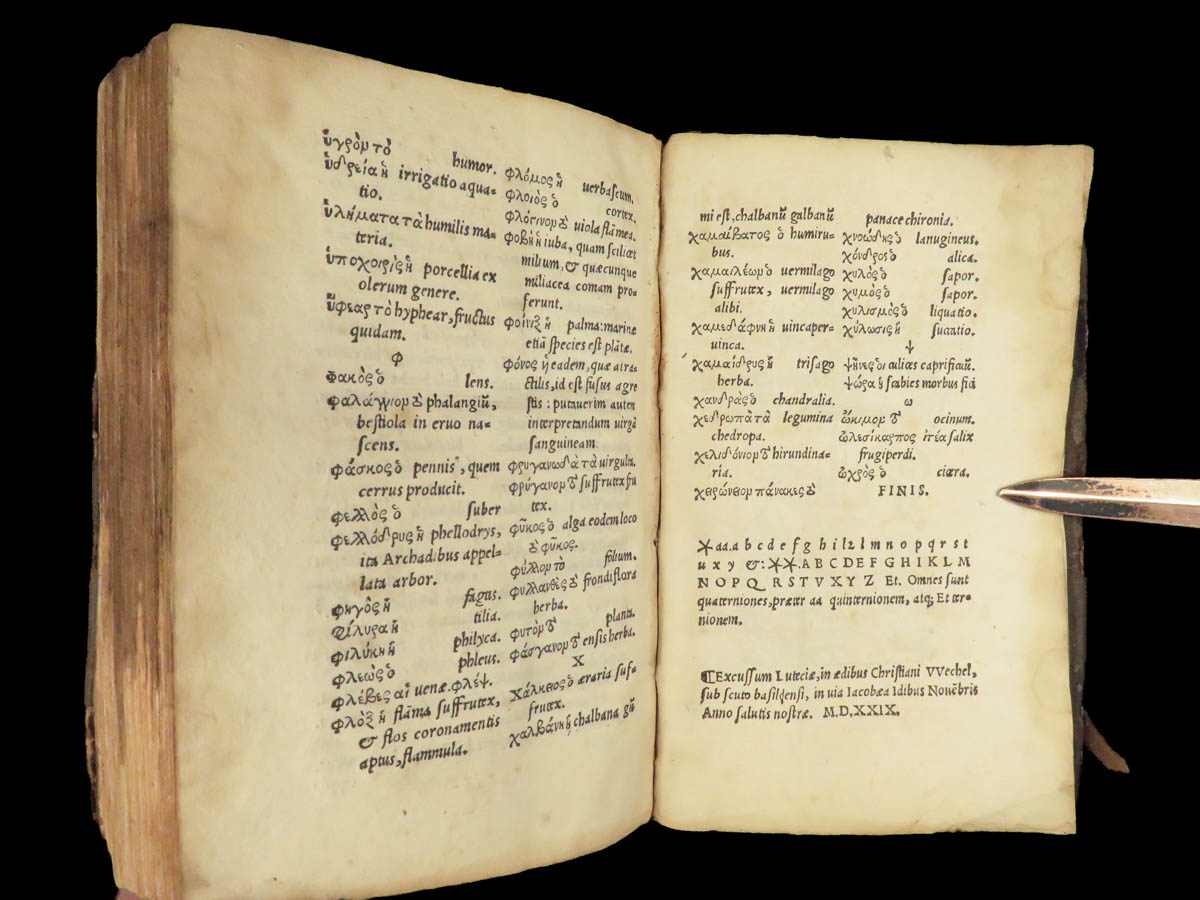 ὑγρὸν τὸ humor.
ὑδρεία ἡ irrigatio aqua-
tio.
ὑλήματα τὰ humilis ma-
teria.
ὑποχοιρὶς ἡ porcellia ex
olerum genere.
ὕφεαρ τὸ hyphear, fructus
quidam.
φ
φακὸς ὁ lens.
φαλάγγιον τὸ phalangiũ,
bestiola in eruo na-
scens.
φάσκος ὁ pennis, quem
cerrus producit.
φελλὸς ὁ suber
φελλόδρυς ἡ phellodrys,
ita Archadibus appel-
lata arbor.
φηγὸς ἡ fagus.
φίλυρα ἡ tilia.
φιλύκη ἡ philyca.
φλεὼς ὁ phleus.
φλέβες αἱ uenæ. φλέψ.
φλὸξ ἡ flãma suffrutex,
& flos coronamentis
aptus, flammula.
φλόμος ἡ uerbascum.
φλοιὸς ὁ cortex.
φλόϊνον τὸ uiola flãmea.
φοβὴ ἡ iuba, quam scilicet
milium, & quæcunque
miliacea comam pro-
ferunt.
φοίνιξ ἡ palma: marinæ
etiã species est plãtæ.
φόνος ἡ eadem, quæ atra-
ctilis, id est fusus agre
stis: putauerim autem
interpretandum uirgã
sanguineam.
φρυγανώδη τὰ uirgulta.
φρύγανον τὸ suffrutex fru
tex.
φῦκος ὁ alga eodem loco
τὸ φῦκος.
φύλλον τὸ folium.
φυλλανθὲς τὸ frondiflora
herba.
φυτὸν τὸ planta.
φάσγανον τὸ ensis herba.
X
χάλκειος ὁ æraria suf-
frutex.
χαλβάνη ἡ chalbana gũ
mi est, chalbanũ galbanũ
χαμαίβατος ὁ humiru-
bus.
χαμαιλέων ὁ uermilago
suffrutex, uermilago
alibi.
χαμεδάφνη ἡ uincaper-
uinca.
χαμαίδρυς ἡ trisago
herba.
χανδρὰς ὁ chandralia.
χεδρωπὰ τὰ legumina
chedropa.
χελιδόνιον τὸ hirundina-
ria.
χειρώνειον πάνακες τὸ
panace chironia.
χνοώδης ὁ lanugineus.
χόνδρος ὁ alica.
χυλὸς ὁ sapor.
χυμὸς ὁ sapor.
χυλισμὸς ὁ liquatio.
χύλωσις ἡ succatio.
ψ
ψῆνες οἱ culices caprificiũ.
ψώρα ἡ scabies morbus fici
ω
ὤκιμον τὸ ocinum.
ὠλεσίκαρπος ἰτέα salix
frugiperdi.
ὦχρος ὁ cicera.
FINIS.
aa. a b c d e f g h i k l m n o p q r s t
u x y &: A B C D E F G H I K L M
N O P Q R S T V X Y Z Et. Omnes sunt
quaterniones, præter aa quinternionem, atq; Et ter-
nionem.
¶Excussum Luteciæ, in ædibus Christiani VVechel,
sub scuto basileensi, in uia Iacobæa Idibus Nouẽbris
Anno salutis nostræ. M.D.XXIX.